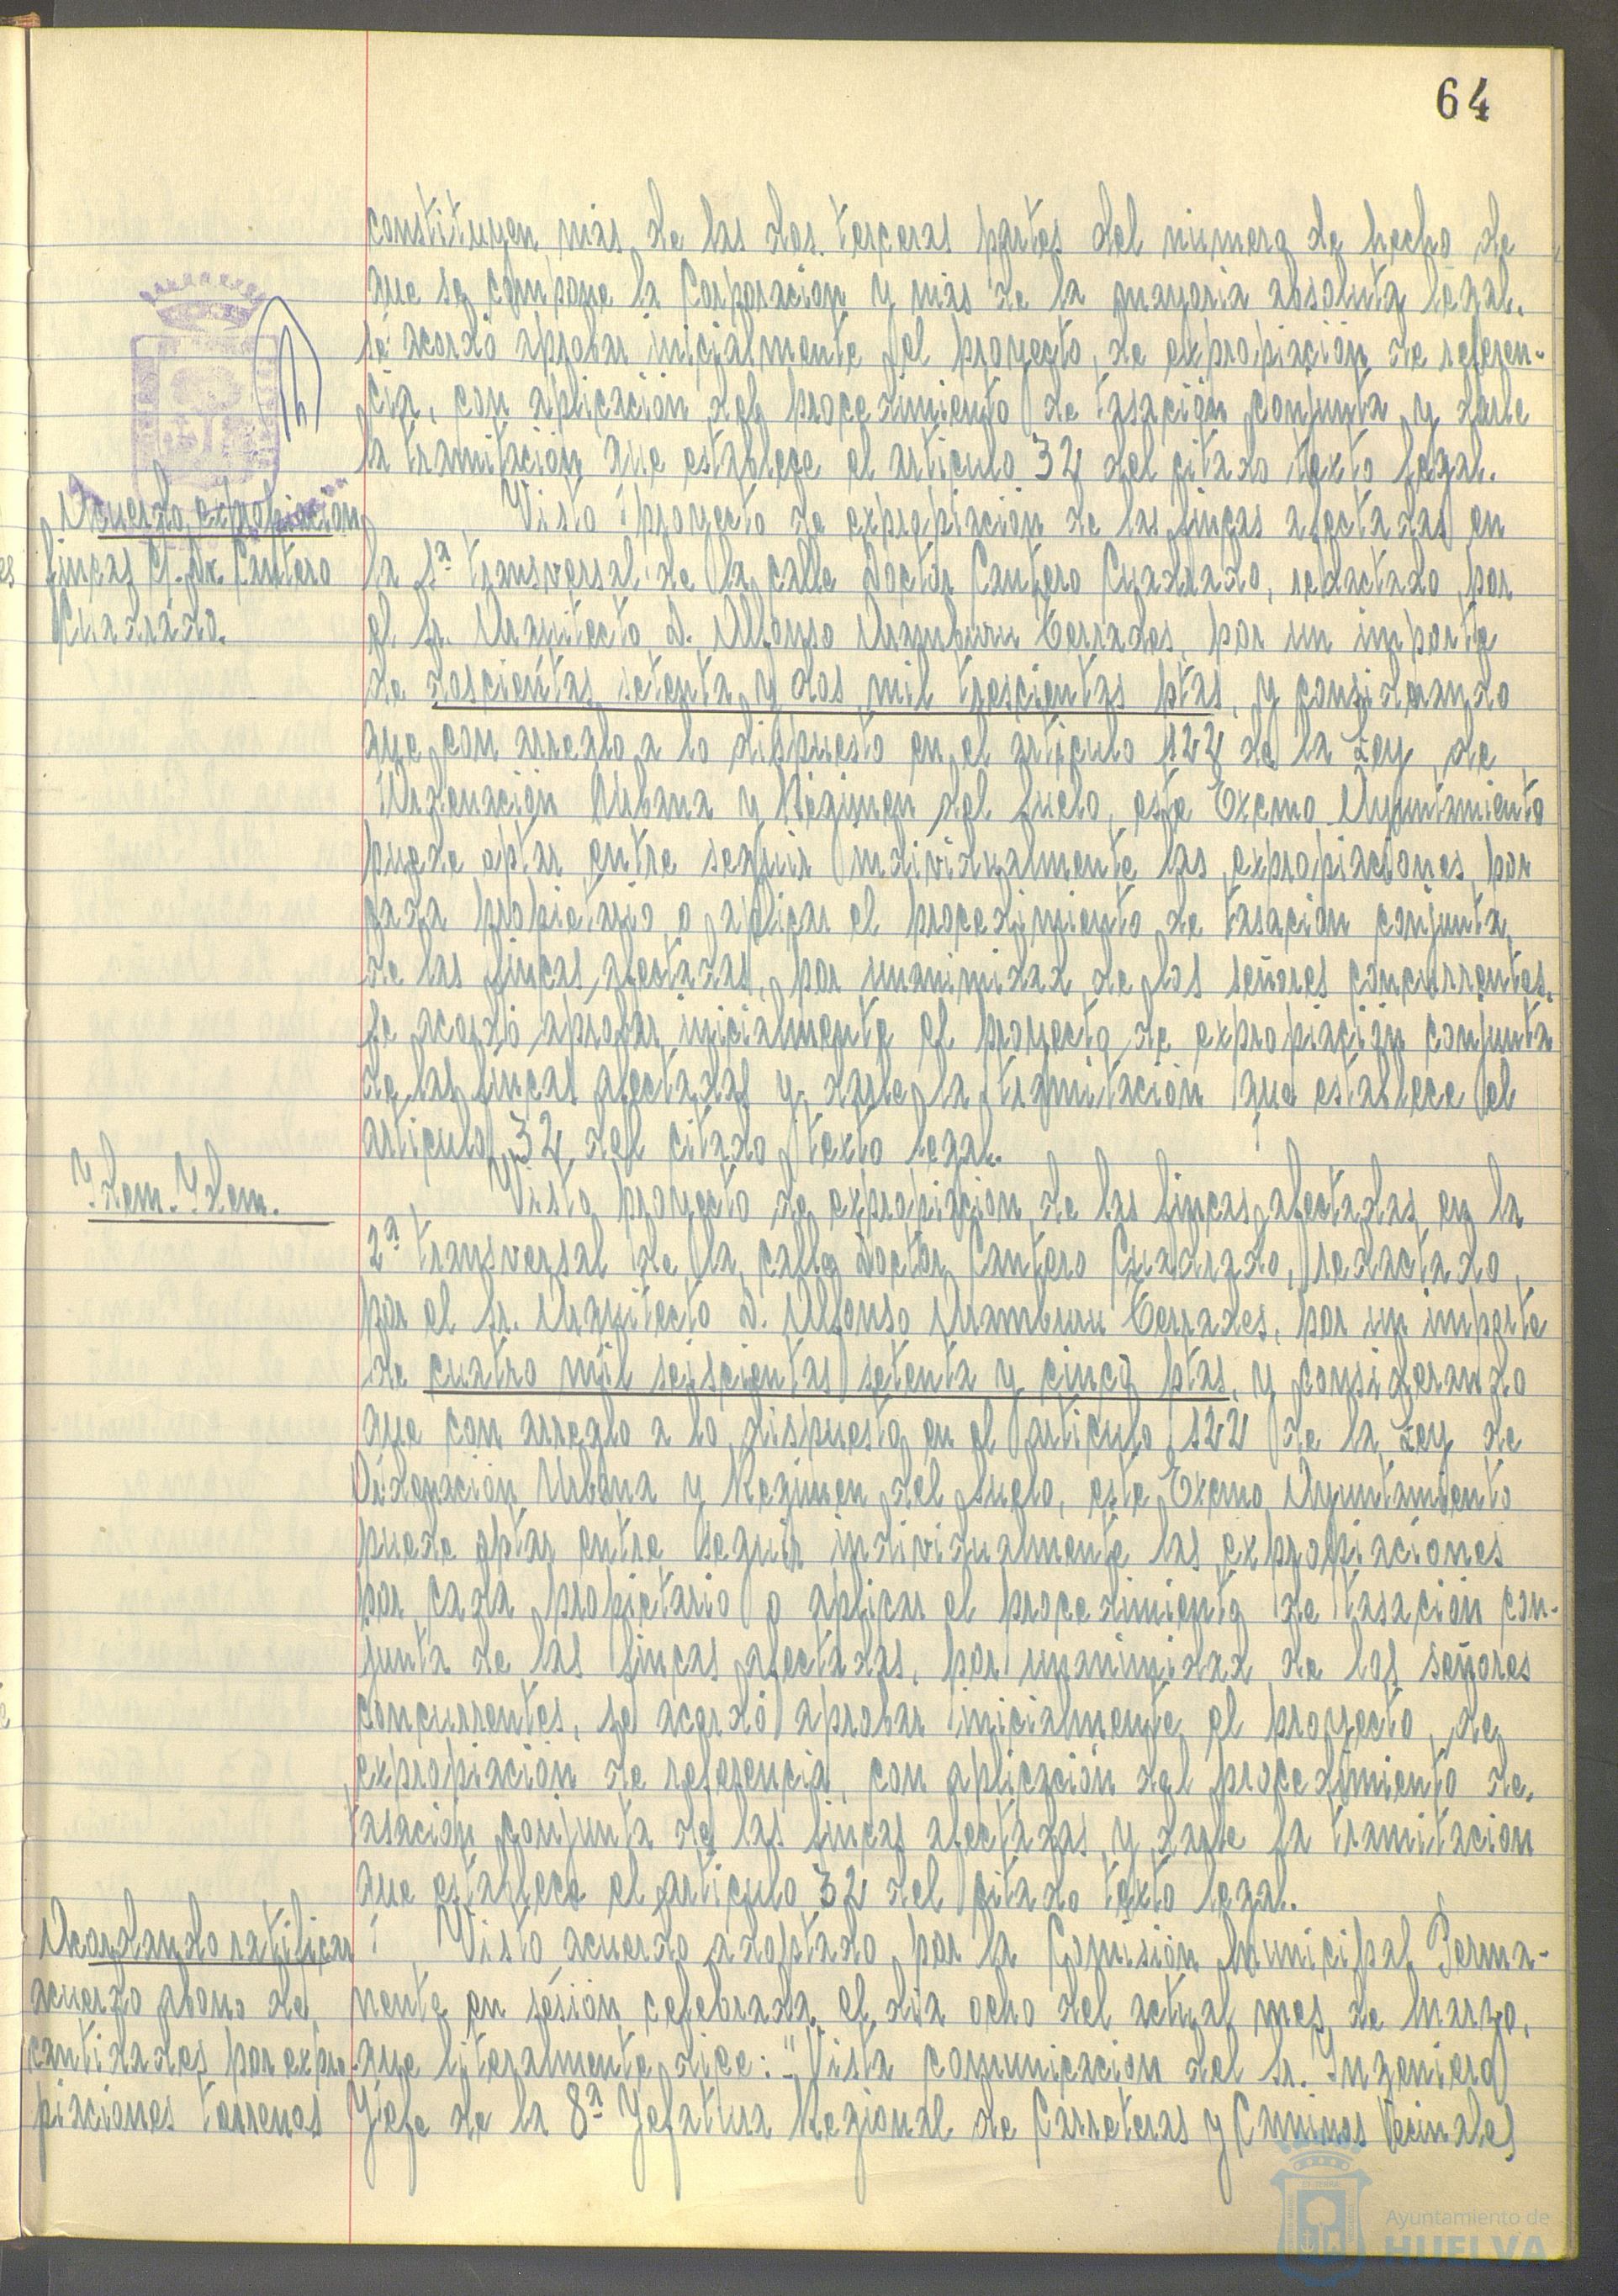 64
constituyen más de las dos terceras partes del número de hecho de
que se compone la Corporación y más de la mayoria absoluta legal,
se acordó aprobar inicialmente el proyecto de expropiación de referen-
cia, con aplicación del procedimiento de tasación conjunta y darle
la tramitación que establece el artículo 32 del citado texto legal.
Acuerdo expropiación
fincas C/. Dr. Cantero
Cuadrado.
Visto proyecto de expropiación de las fincas afectadas en
la 1ª transversal de la calle Doctor Cantero Cuadrado, redactado por
el Sr. Arquitecto D. Alfonso Aramburu Terrades, por un importe
de doscientas setenta y dos mil trescientas ptas, y considerando
que con arreglo a lo dispuesto en el artículo 122 de la Ley de
Ordenación Urbana y Régimen del Suelo, este Excmo Ayuntamiento
puede optar entre seguir individualmente las expropiaciones por
cada propietario o aplicar el procedimiento de tasación conjunta
de las fincas afectadas, por unanimidad de los señores concurrentes,
se acordó aprobar inicialmente el proyecto de expropiación conjunta
de las fincas afectadas y darle la tramitación que establece el
artículo 32 del citado texto legal.
Ydem. Ydem.
Visto proyecto de expropiación de las fincas afectadas en la
2ª transversal de la calle Doctor Cantero Cuadrado, redactado
por el Sr. Arquitecto D. Alfonso Aramburu Terrades, por un importe
de cuatro mil seiscientas setenta y cinco ptas, y considerando
que con arreglo a lo dispuesto en el artículo 122 de la Ley de
Ordenación Urbana y Regimen del Suelo, este Excmo Ayuntamiento
puede optar entre seguir individualmente las expropiaciones
por cada propietario o aplicar el procedimiento de tasación con-
junta de las fincas afectadas, por unanimidad de los señores
concurrentes, se acordó aprobar inicialmente el proyecto de
expropiación de referencia, con aplicación del procedimiento de
tasación conjunta de las fincas afectadas y darle la tramitación
que establece el artículo 32 del citado texto legal.
Acordando ratificar
acuerdo abono de
cantidades por expro-
piaciones terrenos
Visto acuerdo adoptado por la Comisión Municipal Perma-
nente en sesión celebrada el día ocho del actual mes de Marzo,
que literalmente dice: "Vista comunicacion del Sr. Ingeniero
Jefe de la 8ª Jefatura Regional de Carreteras y Caminos Vecinales
Ayuntamiento de
HUELVA